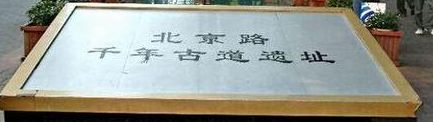 北京路
千年古道遗址